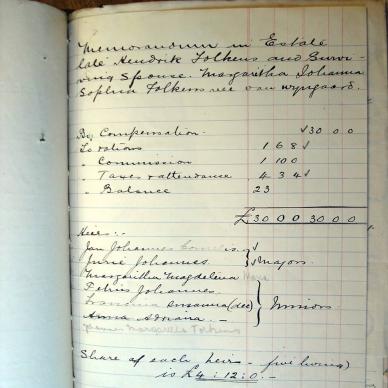 Memorandum in Estate
late Hendrik Folkens and Survi-
ving Spouse. Margaretha Johanna
Sophia Folkens nee van Wyngaard.
By Compensation. 30 0 0
To rations 1 6 8
" Commission 1 10 0
" Taxes & attendance 4 3 4
" Balance 23
£30 0 0 30 0 0
Heirs:-
Jan Johannes
Johannes } Majors
Margaritha Magdelena
Petrus Johannes
Susanna (dec) } Minors
Anna Adriana. -
Margaretha Folkens
Share of each heir - five living)
is £4:12:0. -